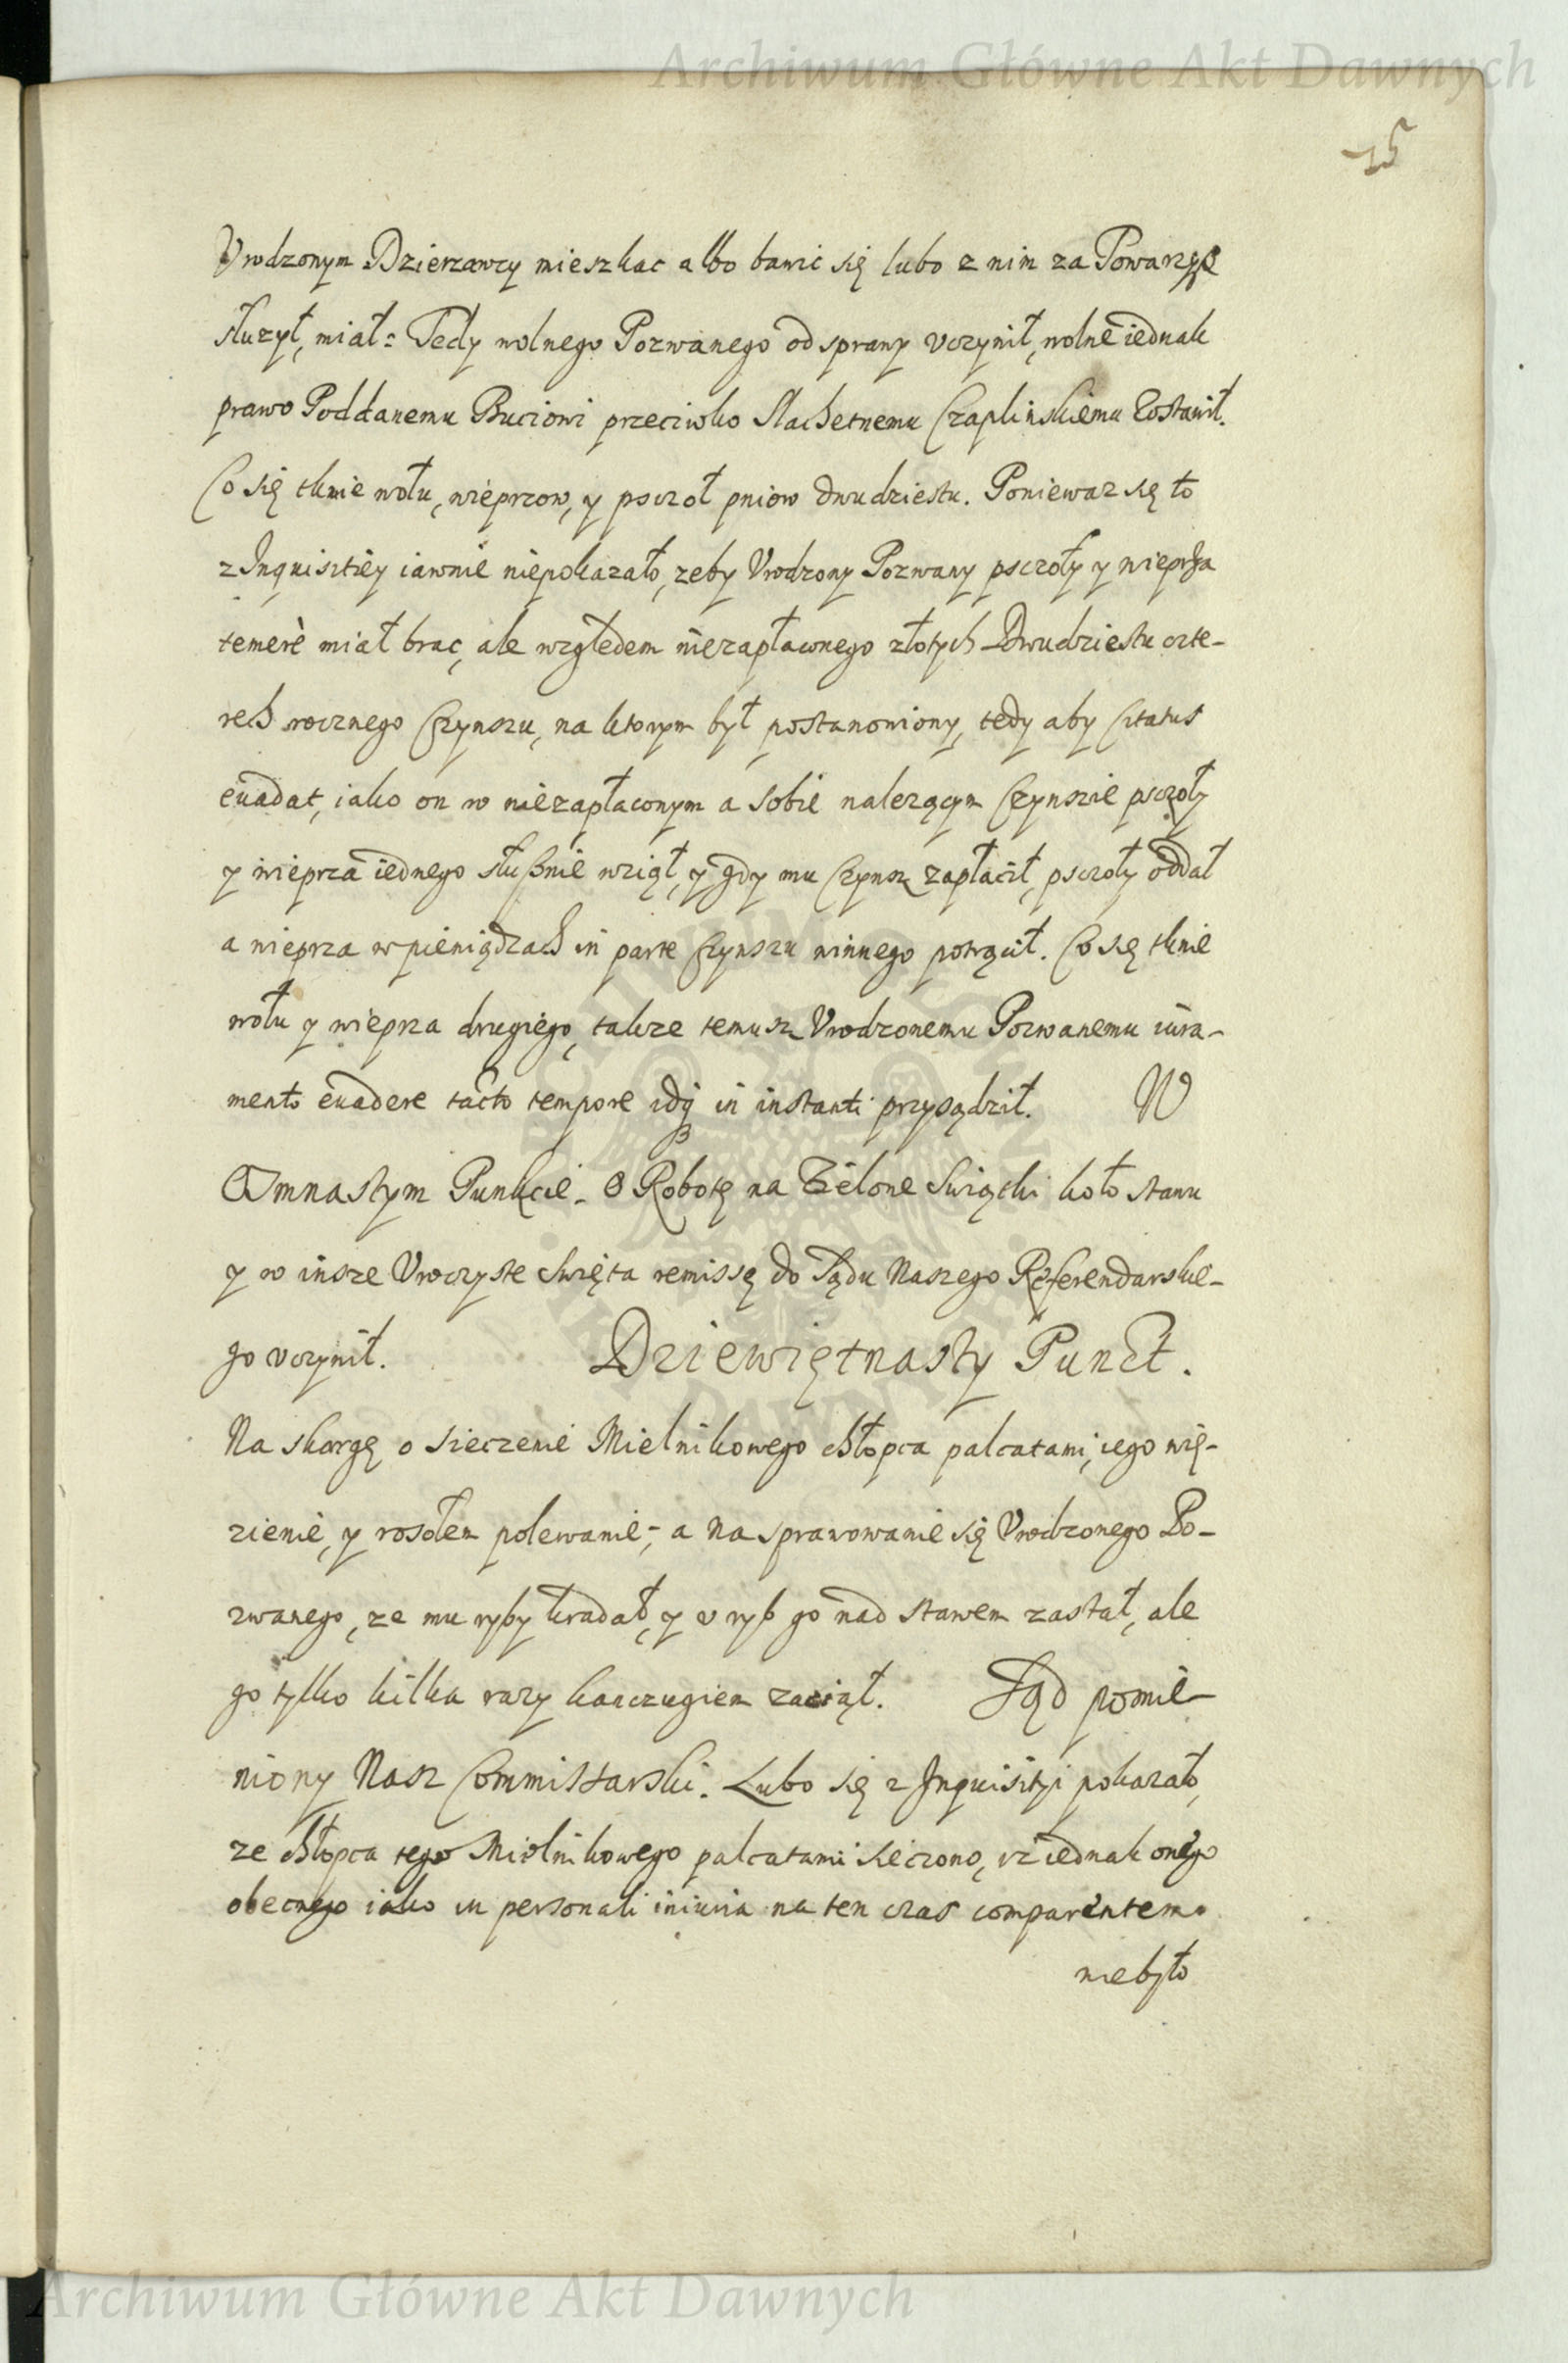 Archiwum Główne Akt Dawnych
15
Vrodzonym Dzierzawcy mieszkac albo bawic się lubo z nim za Powarzyße
służył, miał: Tedy wolnego Pozwanego od sprawy vczynił, wolne iednak
prawo Poddanemu Buciowi przeciwko Slachetnemu Czaplinskiemu Zostawił.
Co się tknie wołu, wieprzow, y pszczoł pniow dwudziestu. Poniewaz się to
z Inquisitiey iawnie niepokazało, zeby Vrodzony Pozwany psczoły y wieprza
temerè miał brac, ale względem niezapłaconego złotych Dwudziestu czte-
rech rocznego Czynszu, na ktorym był postanowiony, tedy aby Citatus
euadat, iako on w niezapłaconym a sobie nalezącym Czynszie psczoły
y wieprza iednego słußnie wziął, y gdy mu Czynsz zapłacił, psczoły oddał
a wieprza w pieniądzach in parte Czynszu winnego potrącił. Co się tknie
wołu y wieprza drugiego, takze temusz Vrodzonemu Pozwanemu iura-
mento euadere tacto tempore idq in instanti przysądził. W
Osmnastym Punkcie. O Robotę na Zielone Swiątki koło stawu
y w insze Vroczyste Swięta remissę do Sądu Naszego Referendarskie-
go vczynił. Dziewiętnasty Punct.
Na skargę o sieczenie Mielnikowego chłopca palcatami, iego wię-
zienie, y rosołem polewanie; a na sprawowanie się Vrodzonego Po-
zwanego, ze mu ryby kradał, y v ryb go nad stawem zastał, ale
go tylko kilka razy kanczugiem zaciął. Sąd pomie-
niony Nasz Commissarski. Lubo się z Inquisityi pokazało,
ze chłopca tego Mielnikowego palcatami sieczono, iz iednak onego
obecnego iako in personali iniuria na ten czas comparentem
niebyło
Archiwum Główne Akt Dawnych